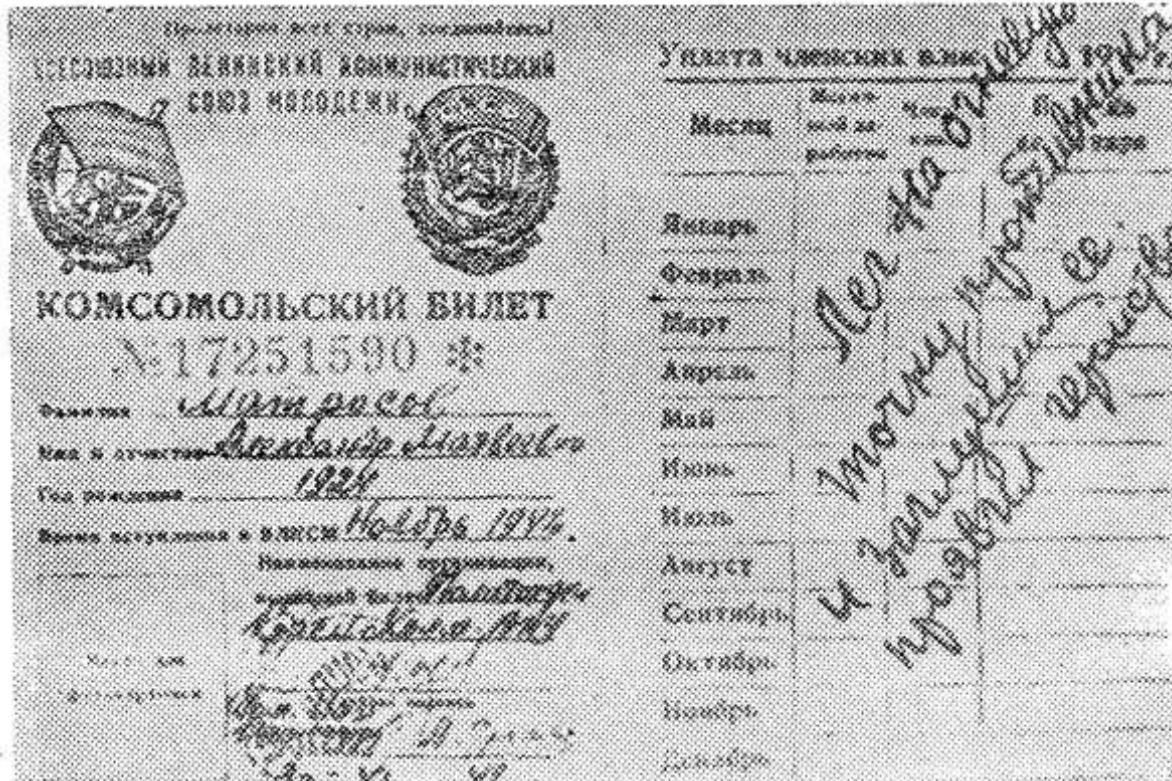 Пролетарии всех стран, соединяйтесь!
ВСЕСОЮЗНЫЙ ЛЕНИНСКИЙ КОММУНИСТИЧЕСКИЙ
СОЮЗ МОЛОДЕЖИ
КОМСОМОЛЬСКИЙ БИЛЕТ
№17251590 *
Фамилия Матросов
Имя и отчество Александр Матвеевич
Год рождения 1924
Время вступления в ВЛКСМ Ноябрь 1942.
Наименование организации,
выдавшей билет
Уплата членских 19
Месяц
работка
Январь
Февраль
Март
Апрель
Май
Июнь
Июль
Август
Сентябрь
Октябрь
Ноябрь
Декабрь
Лег на огневую
точку противника
и заглушил ее
проявил геройство